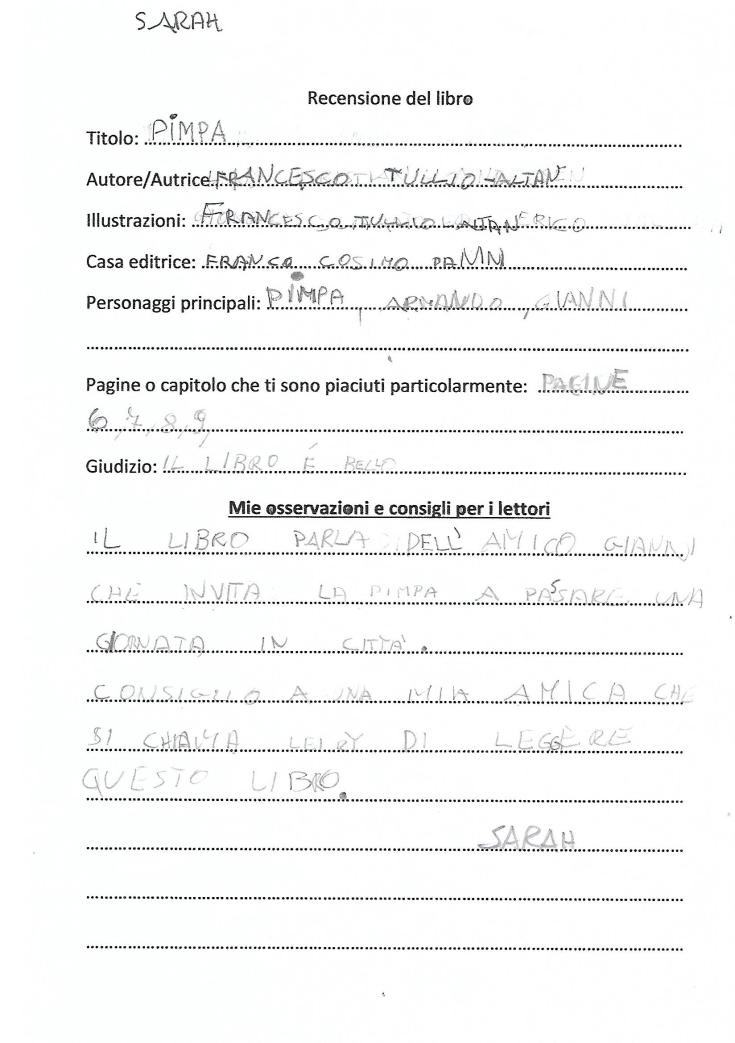 SARAH
Recensione del libro
Titolo: PIMPA
Autore/Autrice: FRANCESCO TULLIO-ALTAN
Illustrazioni: FRANCESCO TULLIO ALTAN
Casa editrice: FRANCO COSIMO PANNI
Personaggi principali: PIMPA, ARMANDO, GIANNI
Pagine o capitolo che ti sono piaciuti particolarmente: PAGINE
6, 7, 8, 9,
Giudizio: IL LIBRO É BELLO
Mie osservazioni e consigli per i lettori
IL LIBRO PARLA DELL' AMICO GIANNI
CHE INVITA LA PIMPA A PASSARE UNA
GIORNATA IN CITTÀ.
CONSIGLIO A UNA MIA AMICA CHE
SI CHIAMA LEIRY DI LEGGERE
QUESTO LIBRO.
SARAH